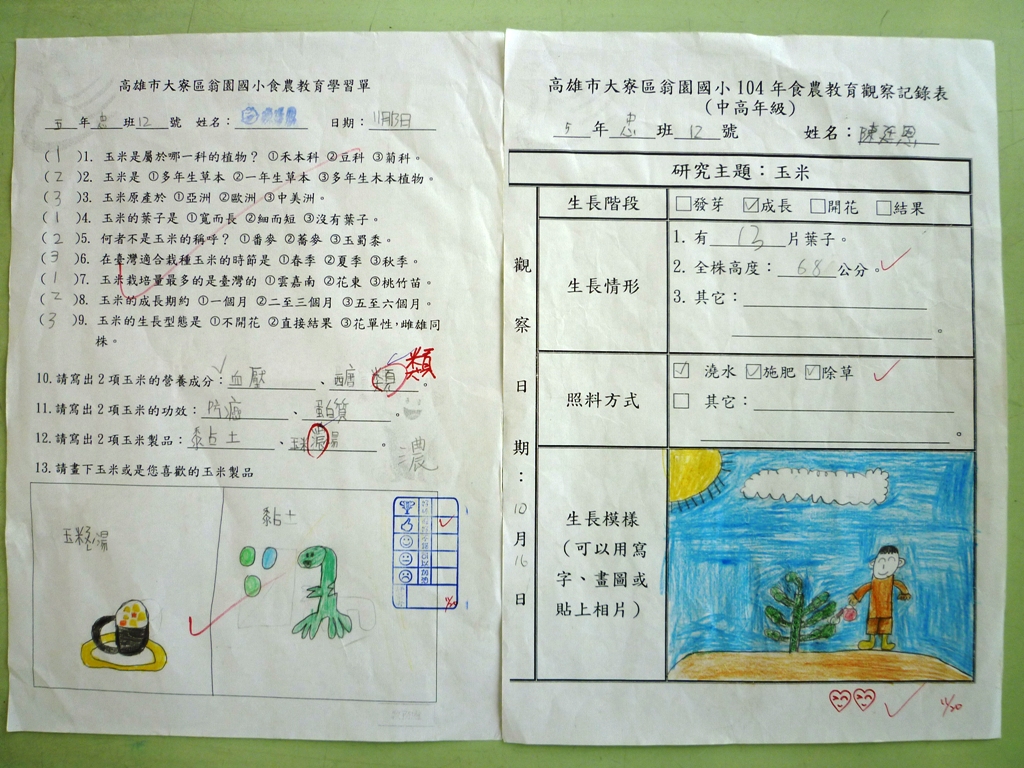 高雄市大寮區翁園國小食農教育學習單
五年忠班12號 姓名： 日期：11月13日
(1)1. 玉米是屬於哪一科的植物？ ①禾本科 ②豆科 ③菊科。
(2)2. 玉米是 ①多年生草本 ②一年生草本 ③多年生木本植物。
(3)3. 玉米原產於 ①亞洲 ②歐洲 ③中美洲。
(1)4. 玉米的葉子是 ①寬而長 ②細而短 ③沒有葉子。
(2)5. 何者不是玉米的稱呼？ ①番麥 ②蕎麥 ③玉蜀黍。
(3)6. 在臺灣適合栽種玉米的時節是 ①春季 ②夏季 ③秋季。
(1)7. 玉米栽培量最多的是臺灣的 ①雲嘉南 ②花東 ③桃竹苗。
(2)8. 玉米的成長期約 ①一個月 ②二至三個月 ③五至六個月。
(3)9. 玉米的生長型態是 ①不開花 ②直接結果 ③花單性，雌雄同
株。
類
10.請寫出2項玉米的營養成分：血壓、醣類。
11.請寫出2項玉米的功效：防癌、蛋白質。
12.請寫出2項玉米製品：黏土、玉米濃湯。
濃
13.請畫下玉米或是您喜歡的玉米製品
黏土
11/20
高雄市大寮區翁園國小104年食農教育觀察記錄表
（中高年級）
5年忠班12號 姓名：陳廷恩
研究主題：玉米
觀察日期：10月16日
生長階段 □發芽 ☑成長 □開花 □結果
生長情形
1. 有13片葉子。
2. 全株高度：68公分。
3. 其它：
。
照料方式
☑ 澆水 ☑施肥 ☑除草
□ 其它：
。
生長模樣
（可以用寫
字、畫圖或
貼上相片）
11/20